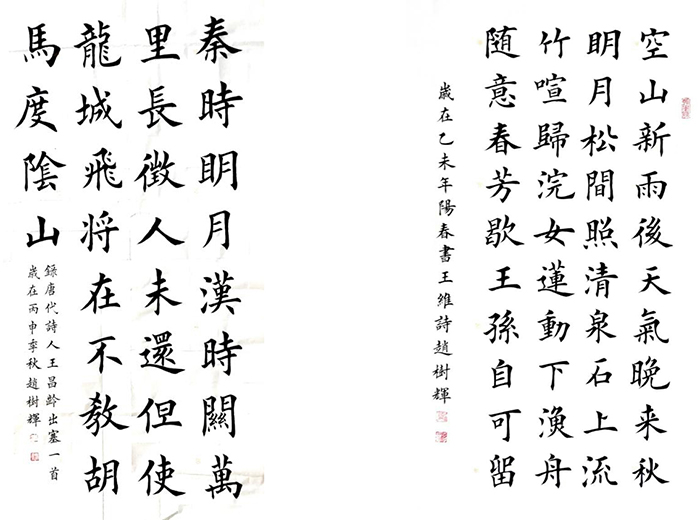 空山新雨後天氣晚来秋
明月松間照清泉石上流
竹喧歸浣女蓮動下漁舟
随意春芳歇王孫自可留
歲在乙未年陽春書王維詩趙樹輝
秦時明月漢時關萬
里長徵人未還但使
龍城飛将在不教胡
馬度陰山
錄唐代詩人王昌齡出塞一首
歲在丙申季秋趙樹輝